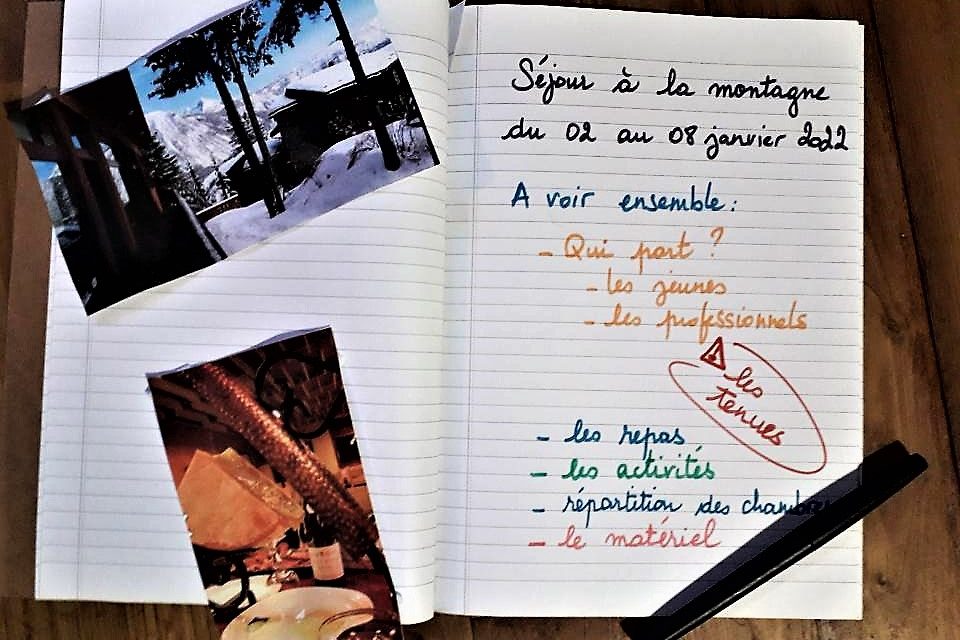 Séjour à la montagne
du 02 au 08 janvier 2022
A voir ensemble :
- Qui part ?
- les jeunes
- les professionnels
! les
tenues
- les repas
- les activités
- répartition des chambres
- le matériel